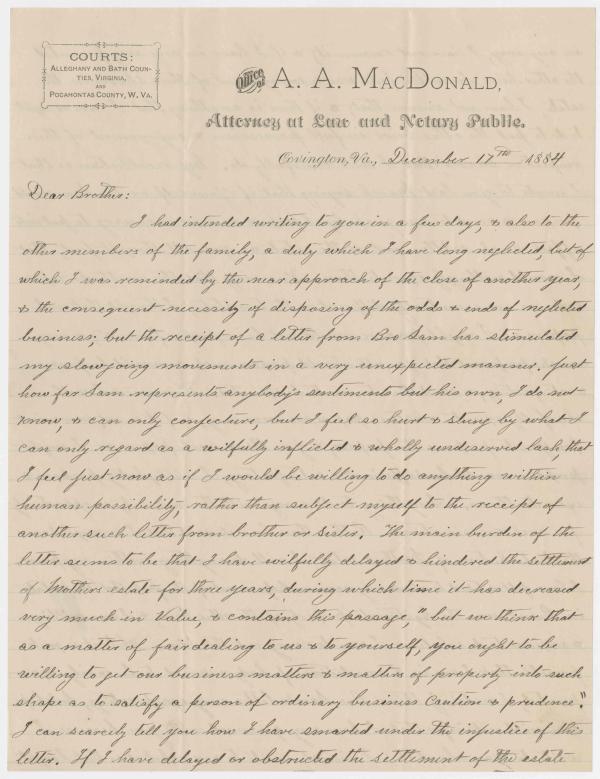 COURTS:
ALLEGHANY AND BATH COUN-
TIES, VIRGINIA,
AND
POCAHONTAS COUNTY, W. VA.
Office of A. A. MACDONALD,
Attorney at Law and Notary Public.
Covington, Va., December 17TH 1884
Dear Brother:
I had intended writing to you in a few days, & also to the
other members of the family, a duty which I have long neglected, but of
which I was reminded by the near approach of the close of another year,
& the consequent necessity of disposing of the odds & ends of neglected
business; but the receipt of a letter from Bro Sam has stimulated
my slowgoing movements in a very unexpected manner. Just
how far Sam represents anybody's sentiments but his own, I do not
know, & can only conjecture, but I feel so hurt & stung by what I
can only regard as a wilfully inflicted & wholly undeserved lash, that
I feel just now as if I would be willing to do anything within
human possibility, rather than subject myself to the receipt of
another such letter from brother or sister. The main burden of the
letter seems to be that I have wilfully delayed & hindered the settlement
of Mothers estate for three years, during which time it has decreased
very much in value, & contains this passage, "but we think that
as a matter of fairdealing to us & to yourself, you ought to be
willing to get our business matters & matters of property into such
shape as to satisfy a person of ordinary business caution & prudence."
I can scarcely tell you how I have smarted under the injustice of this
letter. If I have delayed or obstructed the settlement of the estate